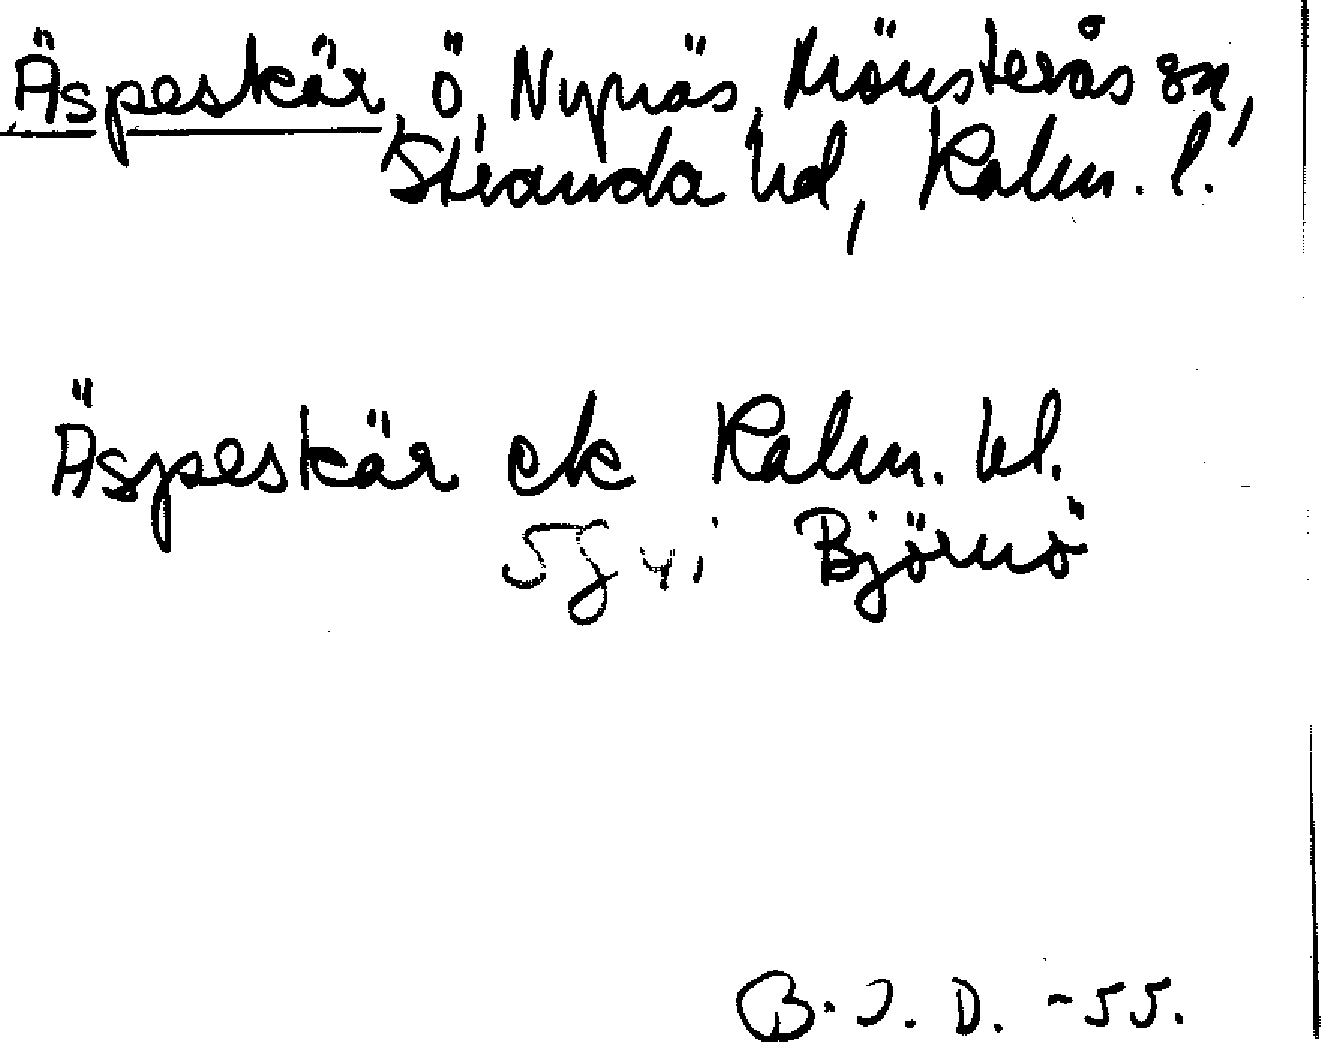 Äspeskär, ö, Nynäs, Mönsterås sn,
Stranda hd, Kalm. l.
Äspeskär ek Kalm. bl.
5g4i Björnö
B. J. D. -55.